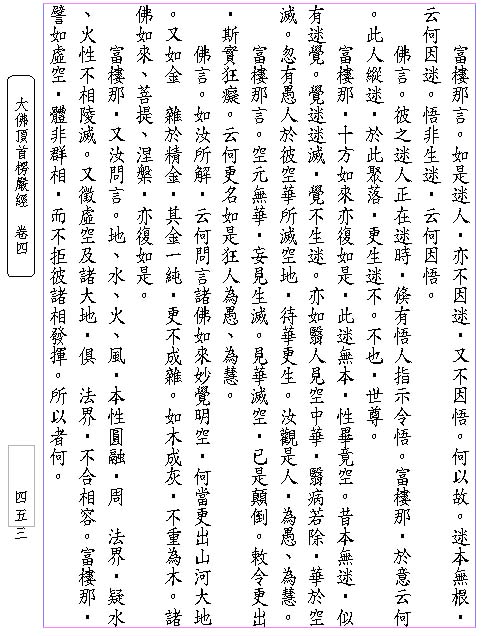 富樓那言。如是迷人．亦不因迷．又不因悟。何以故。迷本無根．
云何因迷。悟非生迷．云何因悟。
佛言。彼之迷人正在迷時．倐有悟人指示令悟。富樓那．於意云何
。此人縱迷．於此聚落．更生迷不。不也．世尊。
富樓那．十方如來亦復如是．此迷無本．性畢竟空。昔本無迷．似
有迷覺。覺迷迷滅．覺不生迷。亦如翳人見空中華．翳病若除．華於空
滅。忽有愚人於彼空華所滅空地．待華更生。汝觀是人．為愚、為慧。
富樓那言。空元無華．妄見生滅。見華滅空．已是顛倒。敕令更出
．斯實狂癡。云何更名如是狂人為愚、為慧。
佛言。如汝所解　云何問言諸佛如來妙覺明空．何當更出山河大地
。又如金　雜於精金．其金一純．更不成雜。如木成灰．不重為木。諸
佛如來、菩提、涅槃．亦復如是。
富樓那．又汝問言。地、水、火、風．本性圓融．周　法界．疑水
、火性不相陵滅。又徵虛空及諸大地．俱　法界．不合相容。富樓那．
譬如虛空．體非群相．而不拒彼諸相發揮。所以者何。
大佛頂首楞嚴經　卷四
四五三